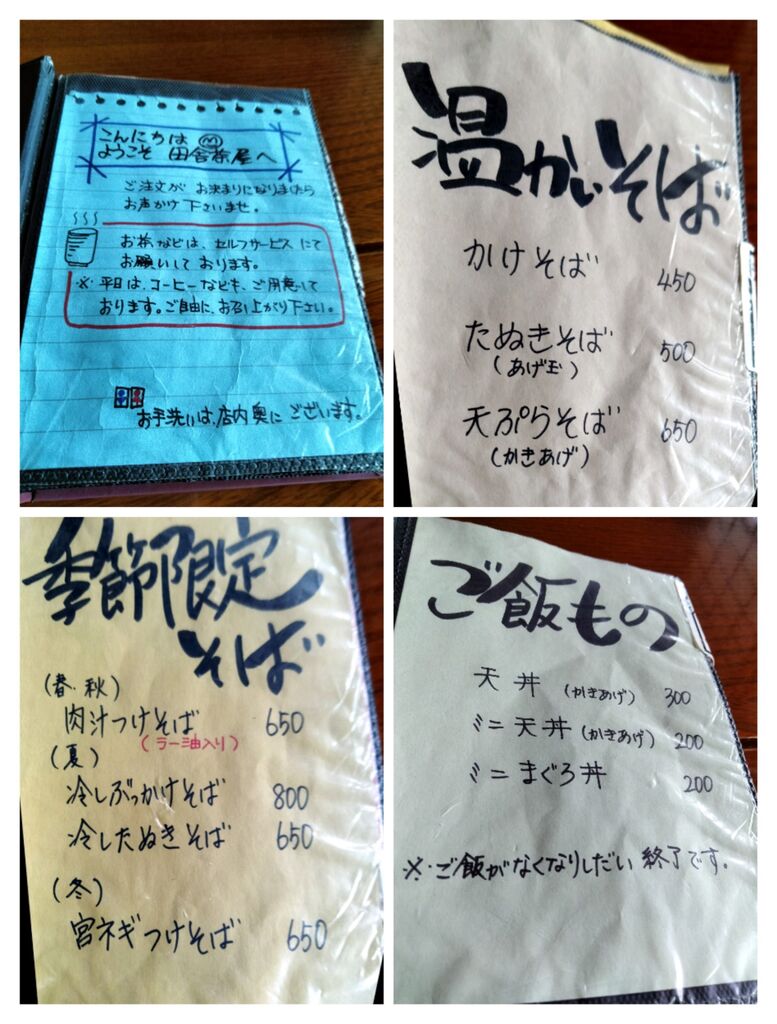 こんにちは ㋱
ようこそ 田舎茶屋へ
ご注文が お決まりになりましたら
お声かけ 下さいませ。
お茶などは、セルフサービス にて
お願いして おります。
※ 平日は、コーヒーなども、ご用意して
おります。ご自由に、お召し上がり下さい。
お手洗いは、店内奥に ございます。
温かいそば
かけそば 450
たぬきそば 500
(あげ玉)
天ぷらそば 650
(かきあげ)
季節限定
そば
(春・秋)
肉汁つけそば 650
(ラー油入り)
(夏)
冷しぶっかけそば 800
冷したぬきそば 650
(冬)
宮ネギつけそば 650
ご飯もの
天丼 (かきあげ) 300
ミニ天丼 (かきあげ) 200
ミニまぐろ丼 200
※ご飯がなくなりしだい 終了です。